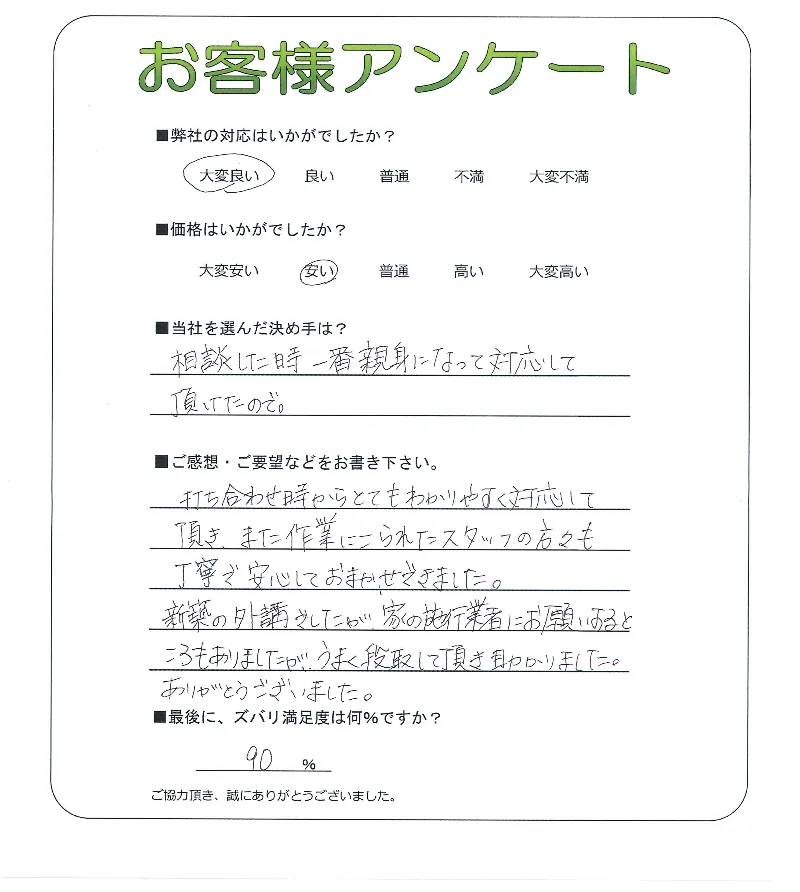 お客様アンケート
■弊社の対応はいかがでしたか？
大変良い 良い 普通 不満 大変不満
■価格はいかがでしたか？
大変安い 安い 普通 高い 大変高い
■当社を選んだ決め手は？
相談した時一番親身になって対応して
頂けたので。
■ご感想・ご要望などをお書き下さい。
打ち合わせ時からとてもわかりやすく対応して
頂き、また作業にこられたスタッフの方々も
丁寧で安心しておまかせできました。
新築の外講でしたが、家の施行業者にお願いすると
ころもありましたが、うまく段取して頂き助かりました。
ありがとうございました。
■最後に、ズバリ満足度は何%ですか？
90 %
ご協力頂き、誠にありがとうございました。